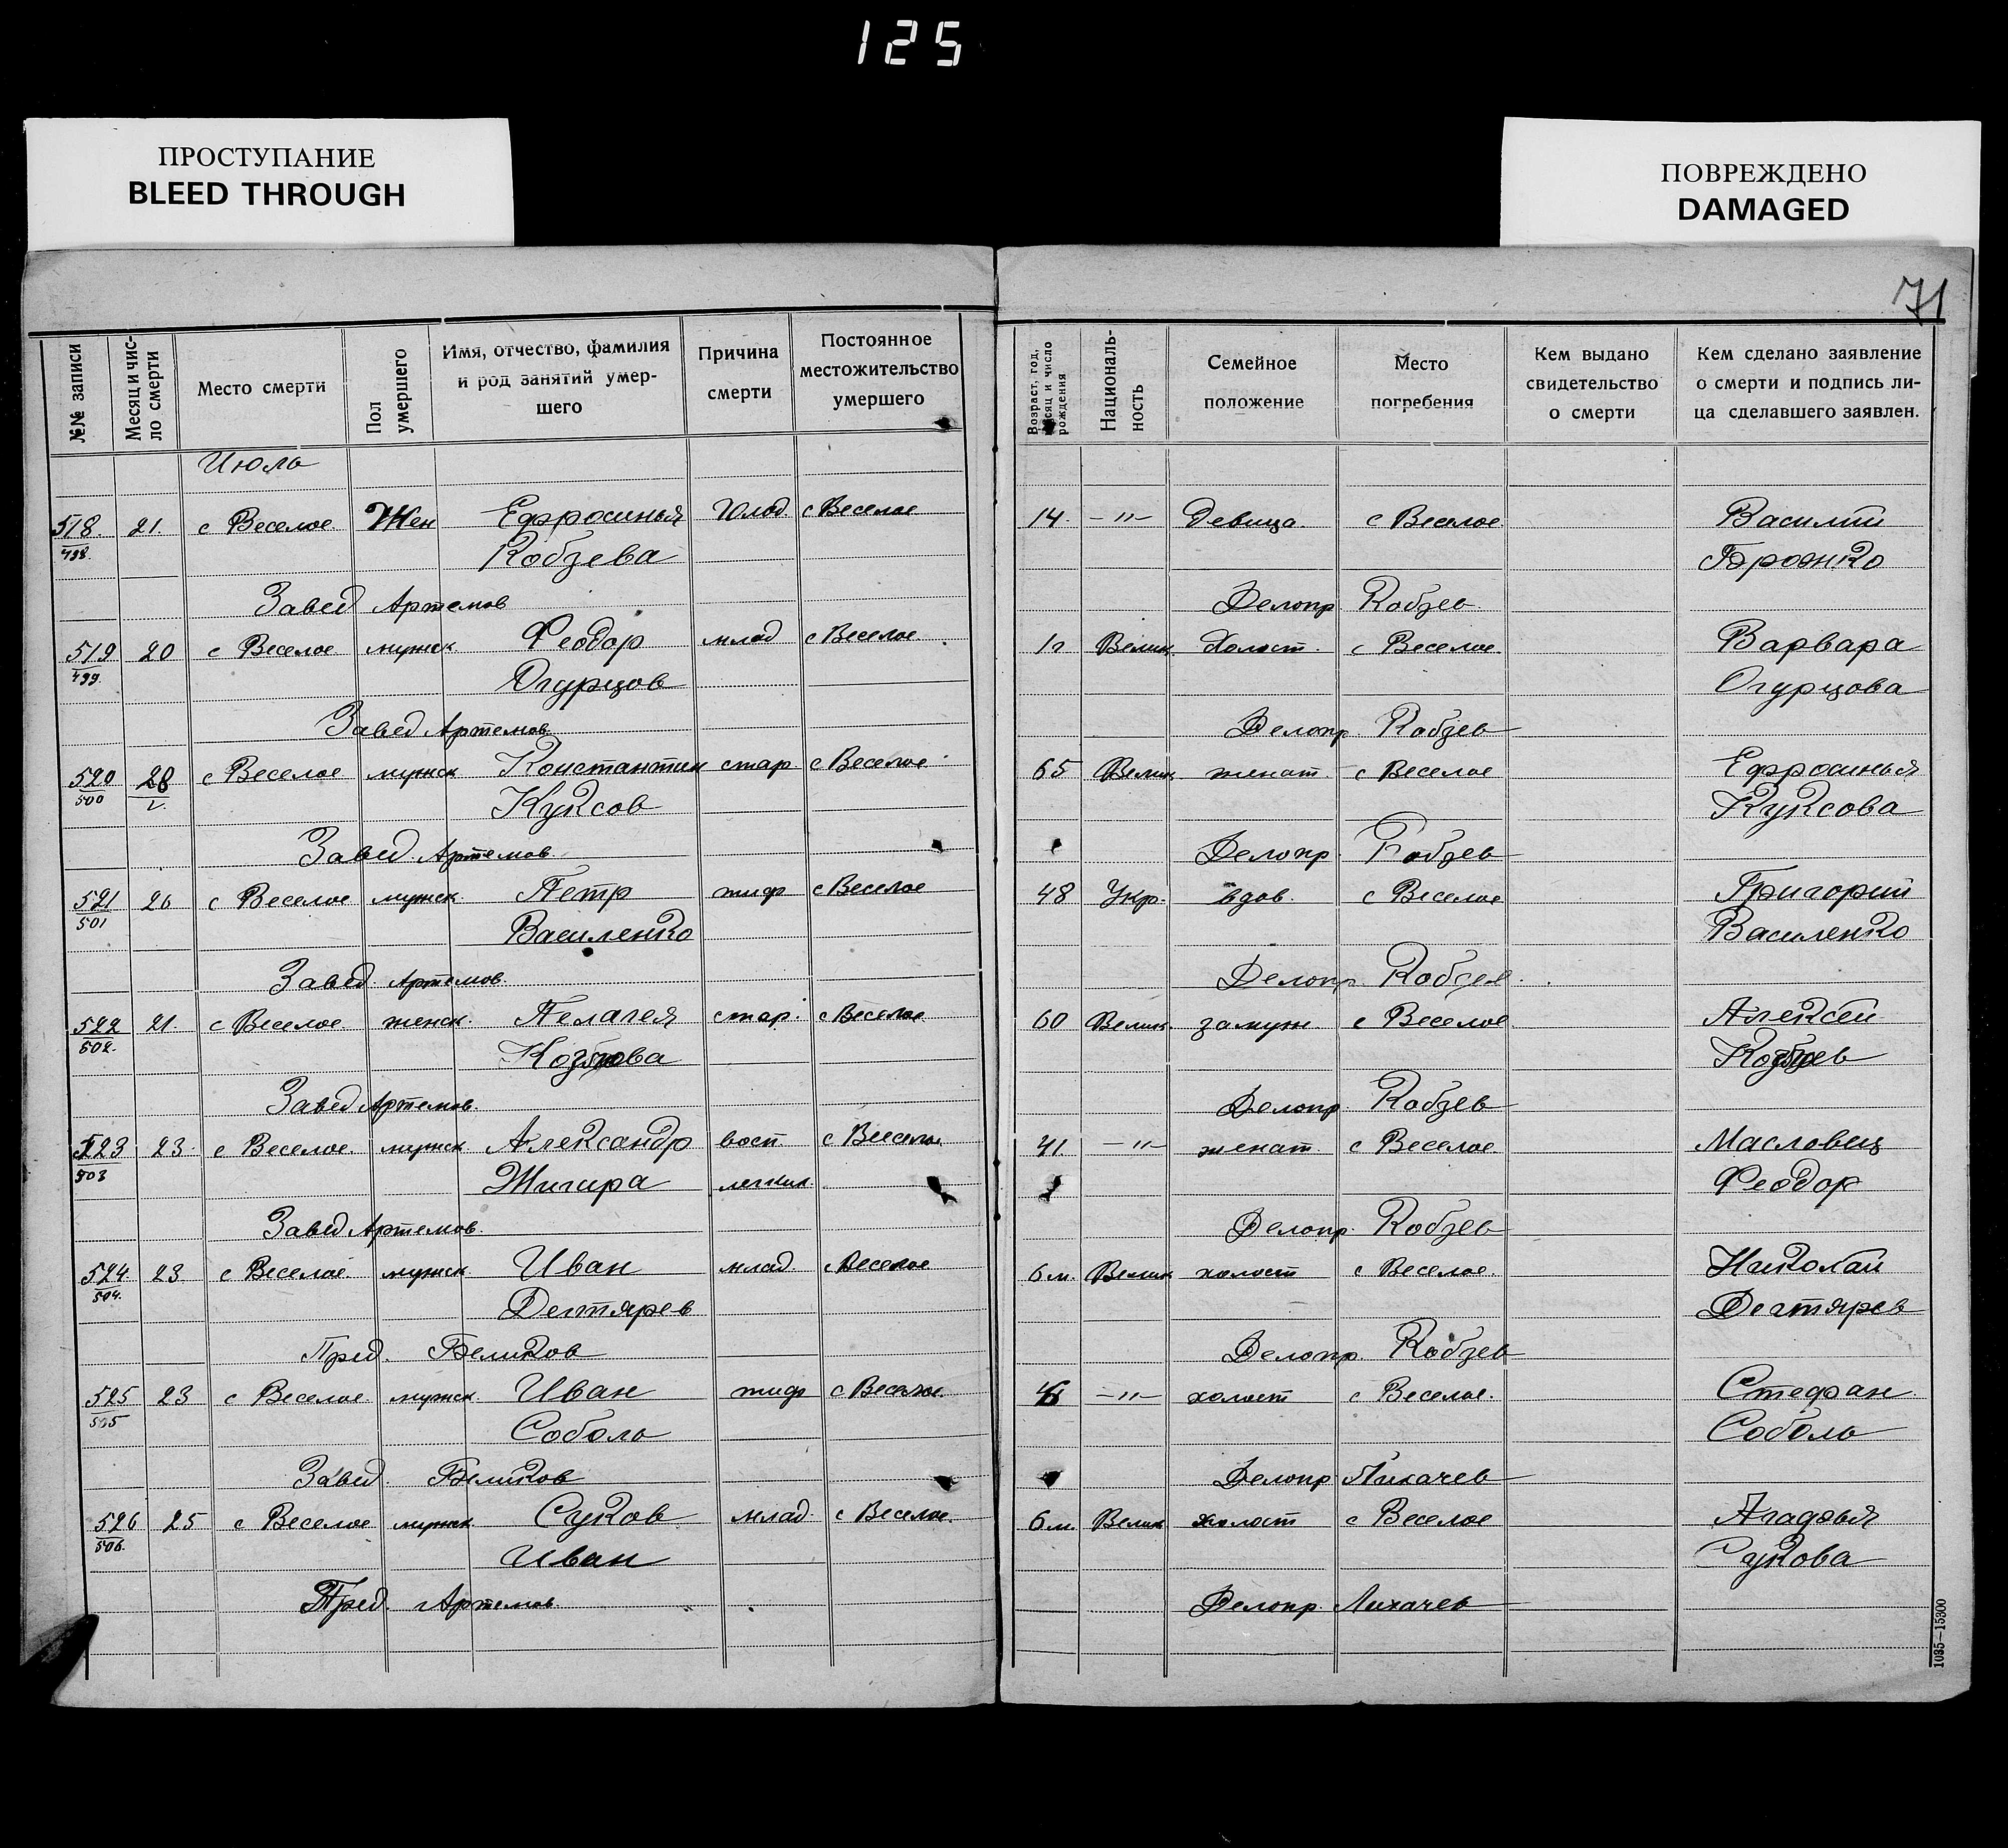 125
ПРОСТУПАНИЕ
BLEED THROUGH
ПОВРЕЖДЕНО
DAMAGED
71
№№ записи
Месяц и число смерти
Место смерти
Пол умершего
Имя, отчество, фамилия
и род занятий умер-
шего
Причина
смерти
Постоянное
местожительство
умершего
Возраст, год,
месяц и число
рождения
Националь-
ность
Семейное
положение
Место
погребения
Кем выдано
свидетельство
о смерти
Кем сделано заявление
о смерти и подпись ли-
ца сделавшего заявлен.
Июль
518. 21. с Веселое Жен Ефросинья Голод. с Веселое 14. -"- Девица. с Веселое Василий
498. Кобзева
Завед Артемов Делопр Кобзев
519 20 с Веселое мужск Феодор млад с Веселое 1г Велик. Холост. с Веселое Варвара
499. Огурцов Огурцова
Завед Артемов. Делопр. Кобзев
520 с Веселое мужск Константин стар с Веселое 65 Велик женат. с Веселое Ефросинья
500 Куксов Куксова
Завед Артемов Делопр. Кобзев
521 26 с Веселое мужск. Петр тиф с Веселое 48 Укр. вдов. с Веселое Григорий
501 Василенко Василенко
Завед. Артемов. Делопр. Кобзев
522 21. с Веселое женск. Пелагея стар. с Веселое 60 Велик. замуж. с Веселое Алексей
502.
Завед Артемов. Делопр. Кобзев
523 23. с Веселое. мужск. Александр восп с Веселое 41. -"- женат. с Веселое. Масловец
503 Жигира легких Феодор
Завед Артемов. Делопр. Кобзев
524. 23. с Веселое мужск Иван млад с Веселое 6 м. Велик холост с Веселое. Николай
504. Дегтярев Дегтярев
Пред. Беликов Делопр. Кобзев
525 23 с Веселое мужск. Иван тиф с Веселое. -"- холост с Веселое. Стефан
505 Соболь Соболь
Завед. Беликов Делопр Лихачев
526 25 с Веселое мужск Суков млад. с Веселое. 6 м. Велик холост с Веселое Агафья
506. Иван Сукова
Пред. Артемов Делопр. Лихачев
1035—15300